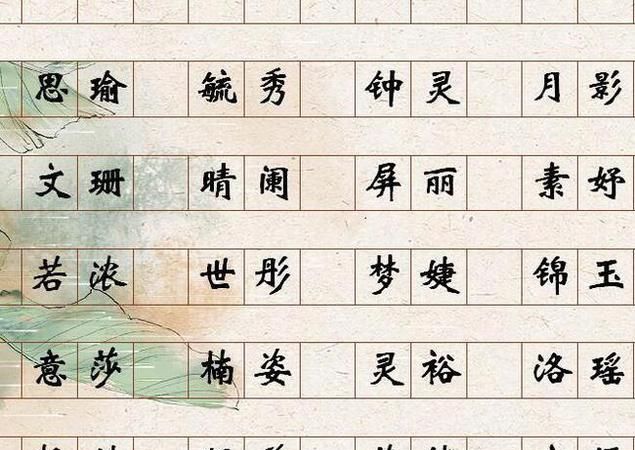 思瑜 毓秀 钟灵 月影
文珊 晴阑 屏丽 素妤
若浓 世彤 梦婕 锦玉
意莎 楠姿 灵裕 洛瑶